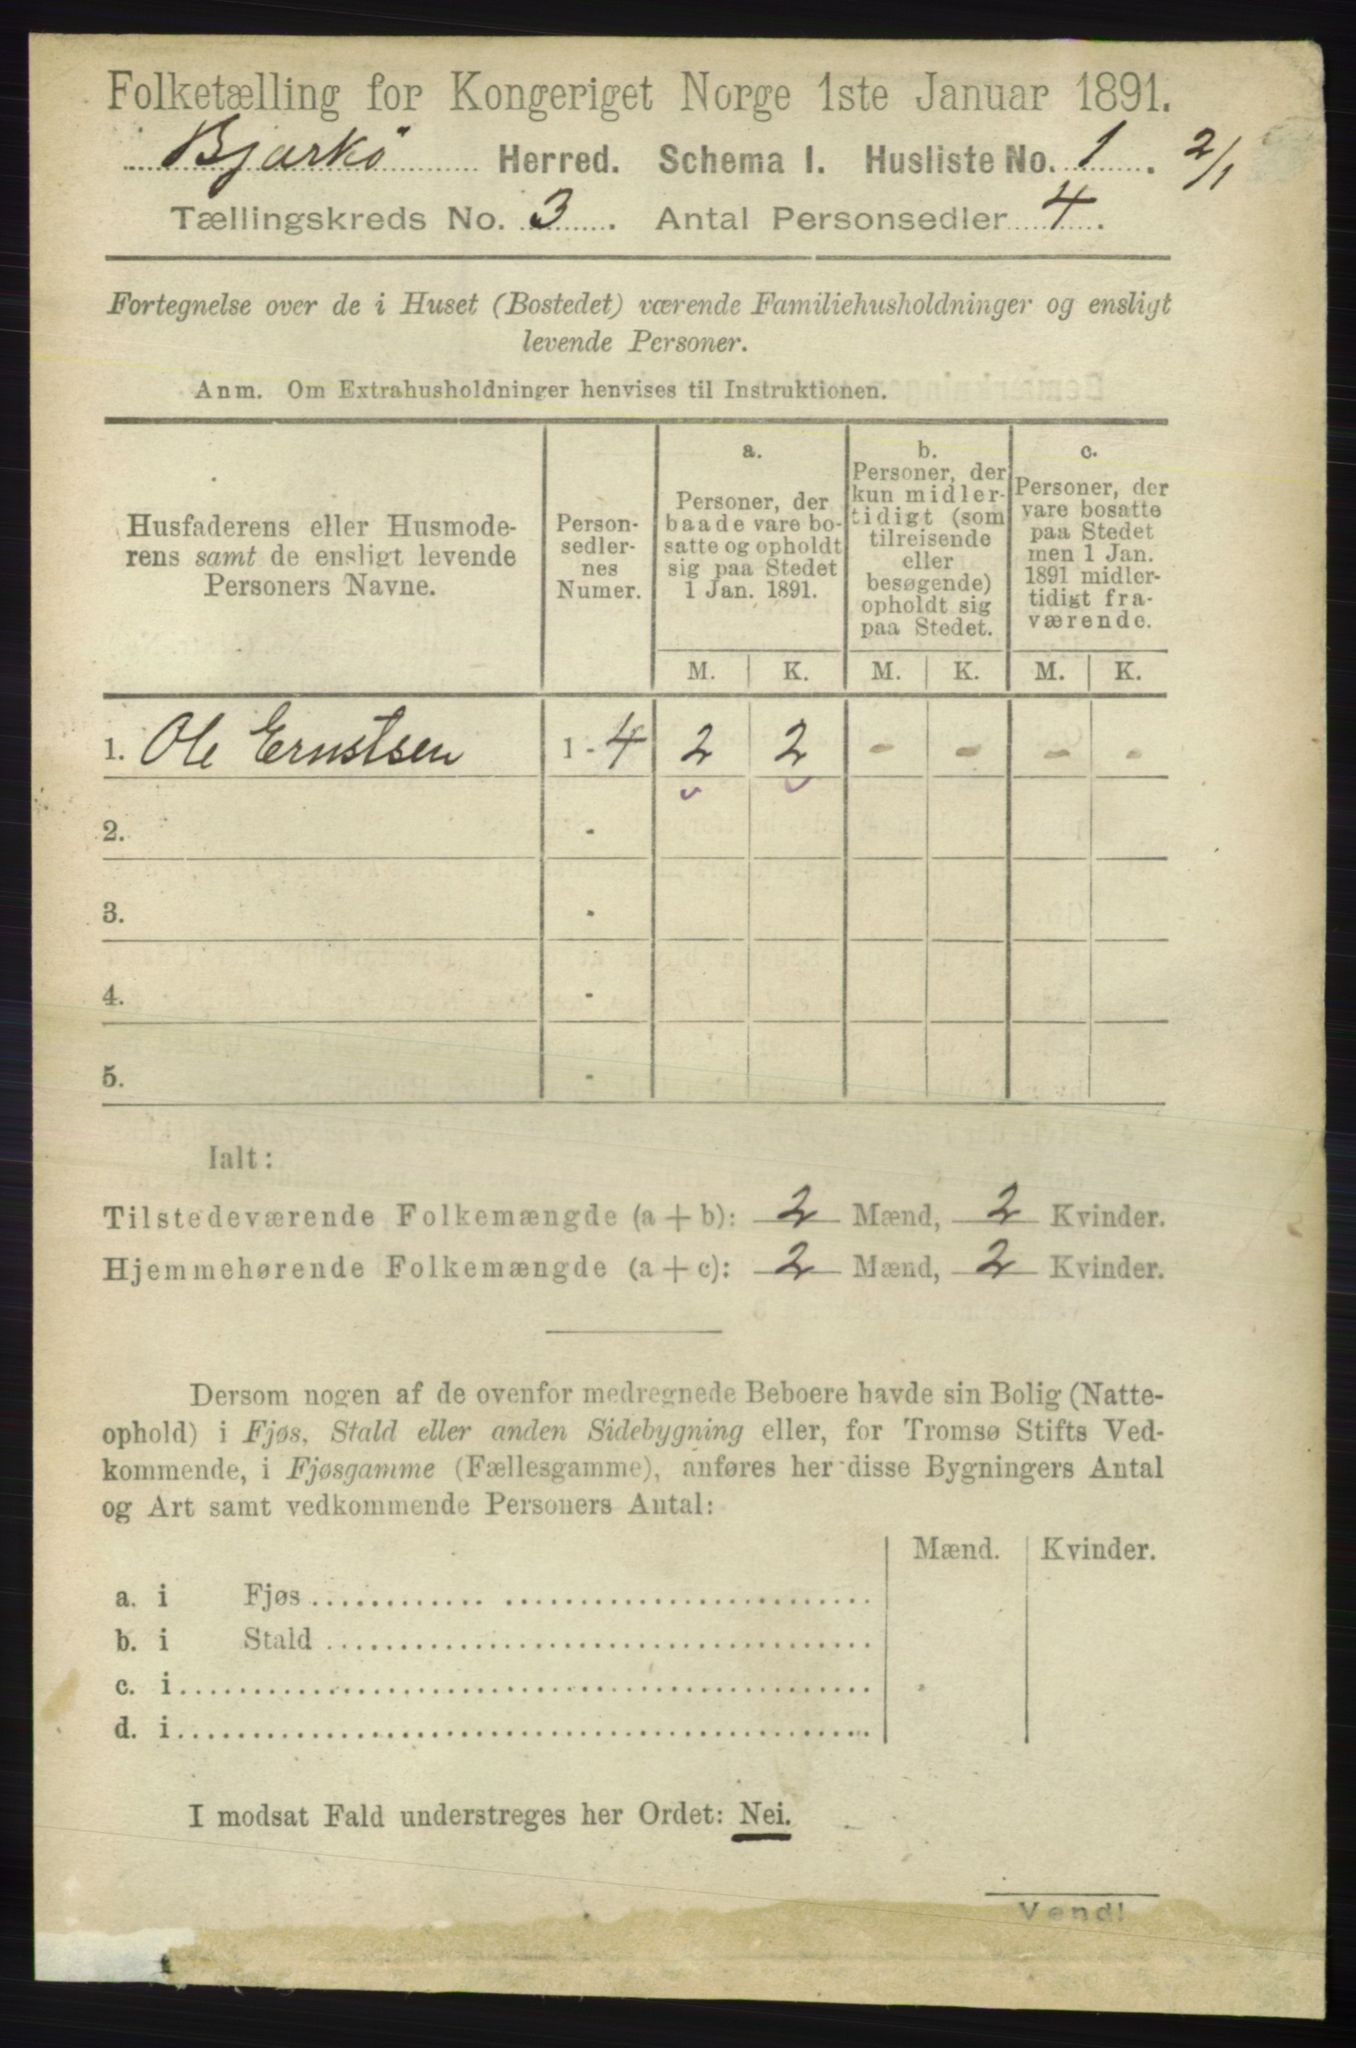 Folketælling for Kongeriget Norge 1ste Januar 1891.
Bjarkö Herred. Schema I. Husliste No. 1. 2/1
Tællingskreds No. 3. Antal Personsedler 4.
Fortegnelse over de i Huset (Bostedet) værende Familiehusholdninger og ensligt
levende Personer.
Anm. Om Extrahusholdninger henvises til Instruktionen.
Husfaderens eller Husmode-
rens samt de ensligt levende
Personers Navne.
Person-
sedler-
nes
Numer.
a.
Personer, der
baade vare bo-
satte og opholdt
sig paa Stedet
1 Jan. 1891.
b.
Personer, der
kun midler-
tidigt (som
tilreisende
eller
besøgende)
opholdt sig
paa Stedet.
c.
Personer, der
vare bosatte
paa Stedet
men 1 Jan.
1891 midler-
tidigt fra-
værende.
M. K. M. K. M. K.
1. Ole Ernstsen 1 - 4 2 2 - - - -
2. -
3. -
4. -
5. -
Ialt:
Tilstedeværende Folkemængde (a + b): 2 Mænd, 2 Kvinder.
Hjemmehørende Folkemængde (a + c): 2 Mænd, 2 Kvinder.
Dersom nogen af de ovenfor medregnede Beboere havde sin Bolig (Natte-
ophold) i Fjøs, Stald eller anden Sidebygning eller, for Tromsø Stifts Ved-
kommende, i Fjøsgamme (Fællesgamme), anføres her disse Bygningers Antal
og Art samt vedkommende Personers Antal:
Mænd. Kvinder.
a. i Fjøs
b. i Stald
c. i
d. i
I modsat Fald understreges her Ordet: Nei.
Vend!